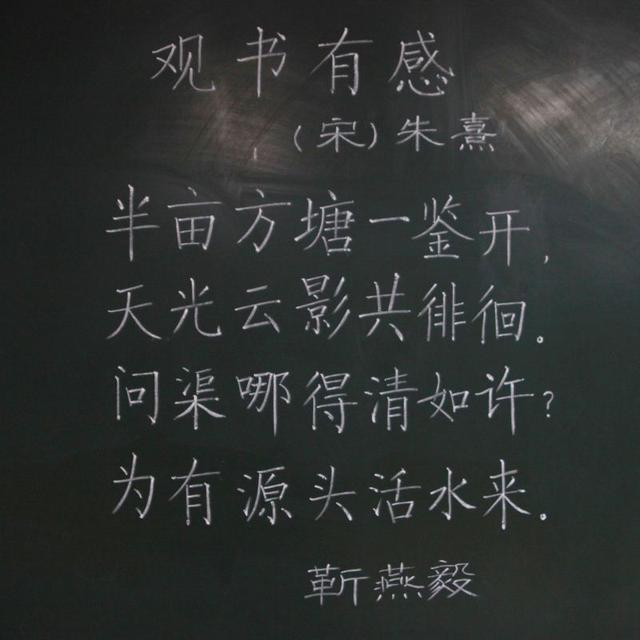 观书有感
（宋）朱熹
半亩方塘一鉴开，
天光云影共徘徊。
问渠哪得清如许？
为有源头活水来。
靳燕毅